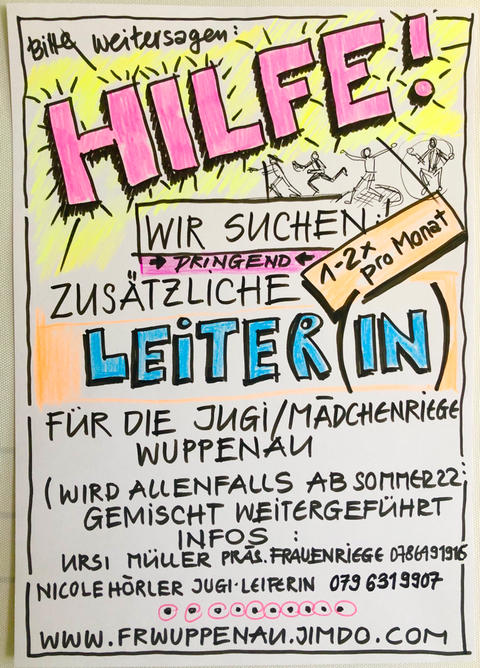 Bitte weitersagen:
HILFE!
WIR SUCHEN:
→ DRINGEND ←
1-2x
pro Monat
ZUSÄTZLICHE
LEITER(IN)
FÜR DIE JUGI/MÄDCHENRIEGE
WUPPENAU
(WIRD ALLENFALLS AB SOMMER 22:
GEMISCHT WEITERGEFÜHRT
INFOS :
URSI MÜLLER PRÄS. FRAUENRIEGE 0786191916
NICOLE HÖRLER JUGI-LEITERIN 079 6319907
WWW.FRWUPPENAU.JIMDO.COM